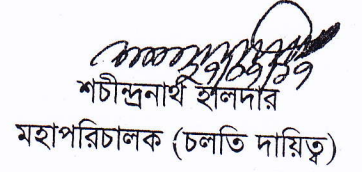 শচীন্দ্রনাথ হালদার
মহাপরিচালক (চলতি দায়িত্ব)